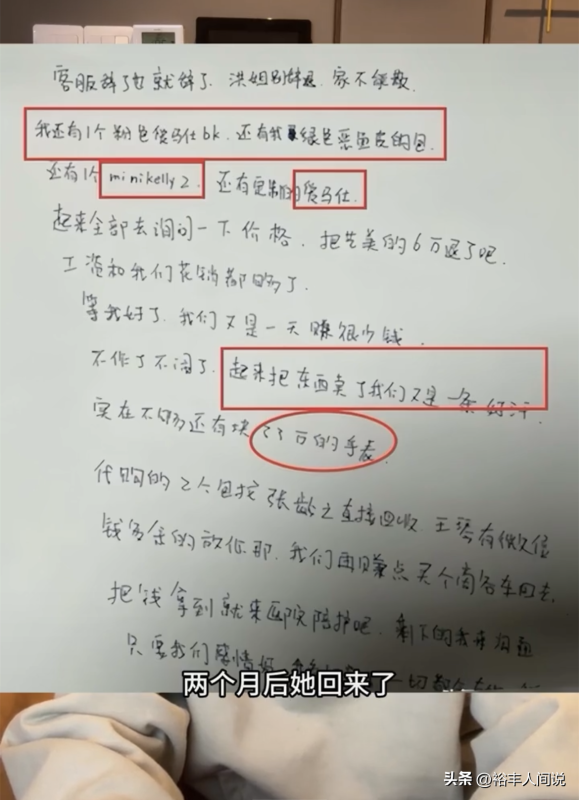 客服辞了也就辞了、洪姐别辞退、家不能散.
我还有1个粉色爱马仕bk.还有我绿色恶鱼皮的包.
还有1个 minikelly 2. 还有定制的爱马仕.
起来全部去询问一下价格、把艺美的6万退了吧.
工资和我们花销都够了.
等我好了、我们又是一天赚很少钱.
不作了不闹了、起来把东西卖了我们又是一条好汉.
实在不够还有块 23万的手表.
代购的2个包找张龄之直接回收.王琴有微信
钱多余的放你那、我们再赚点买个商务车回去.
把钱拿到就来医院陪护吧、剩下的我来沟通
只要我们感情好
一切都
两个月后她回来了
头条 @裕丰人间说